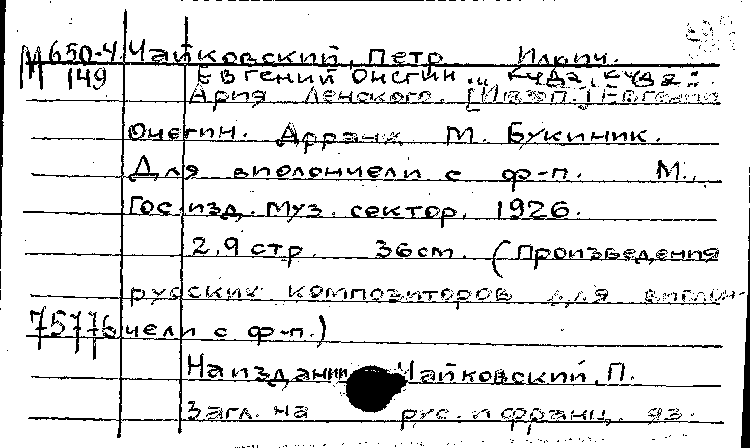 М 650-4 Чайковский, Петр Ильич.
149 Евгений Онегин... Куда, куда:
Ария Ленского. [Из оп.] Евгений
Онегин. Арранж М. Букиник.
Для виолончели с ф-п. М.,
Гос. изд. Муз. сектор, 1926.
2,9 стр. 36 см. (Произведения
русских композиторов для виолон-
75776 чели с ф-п.)
На издании Чайковский, П.
Загл. на рус. и франц. яз.